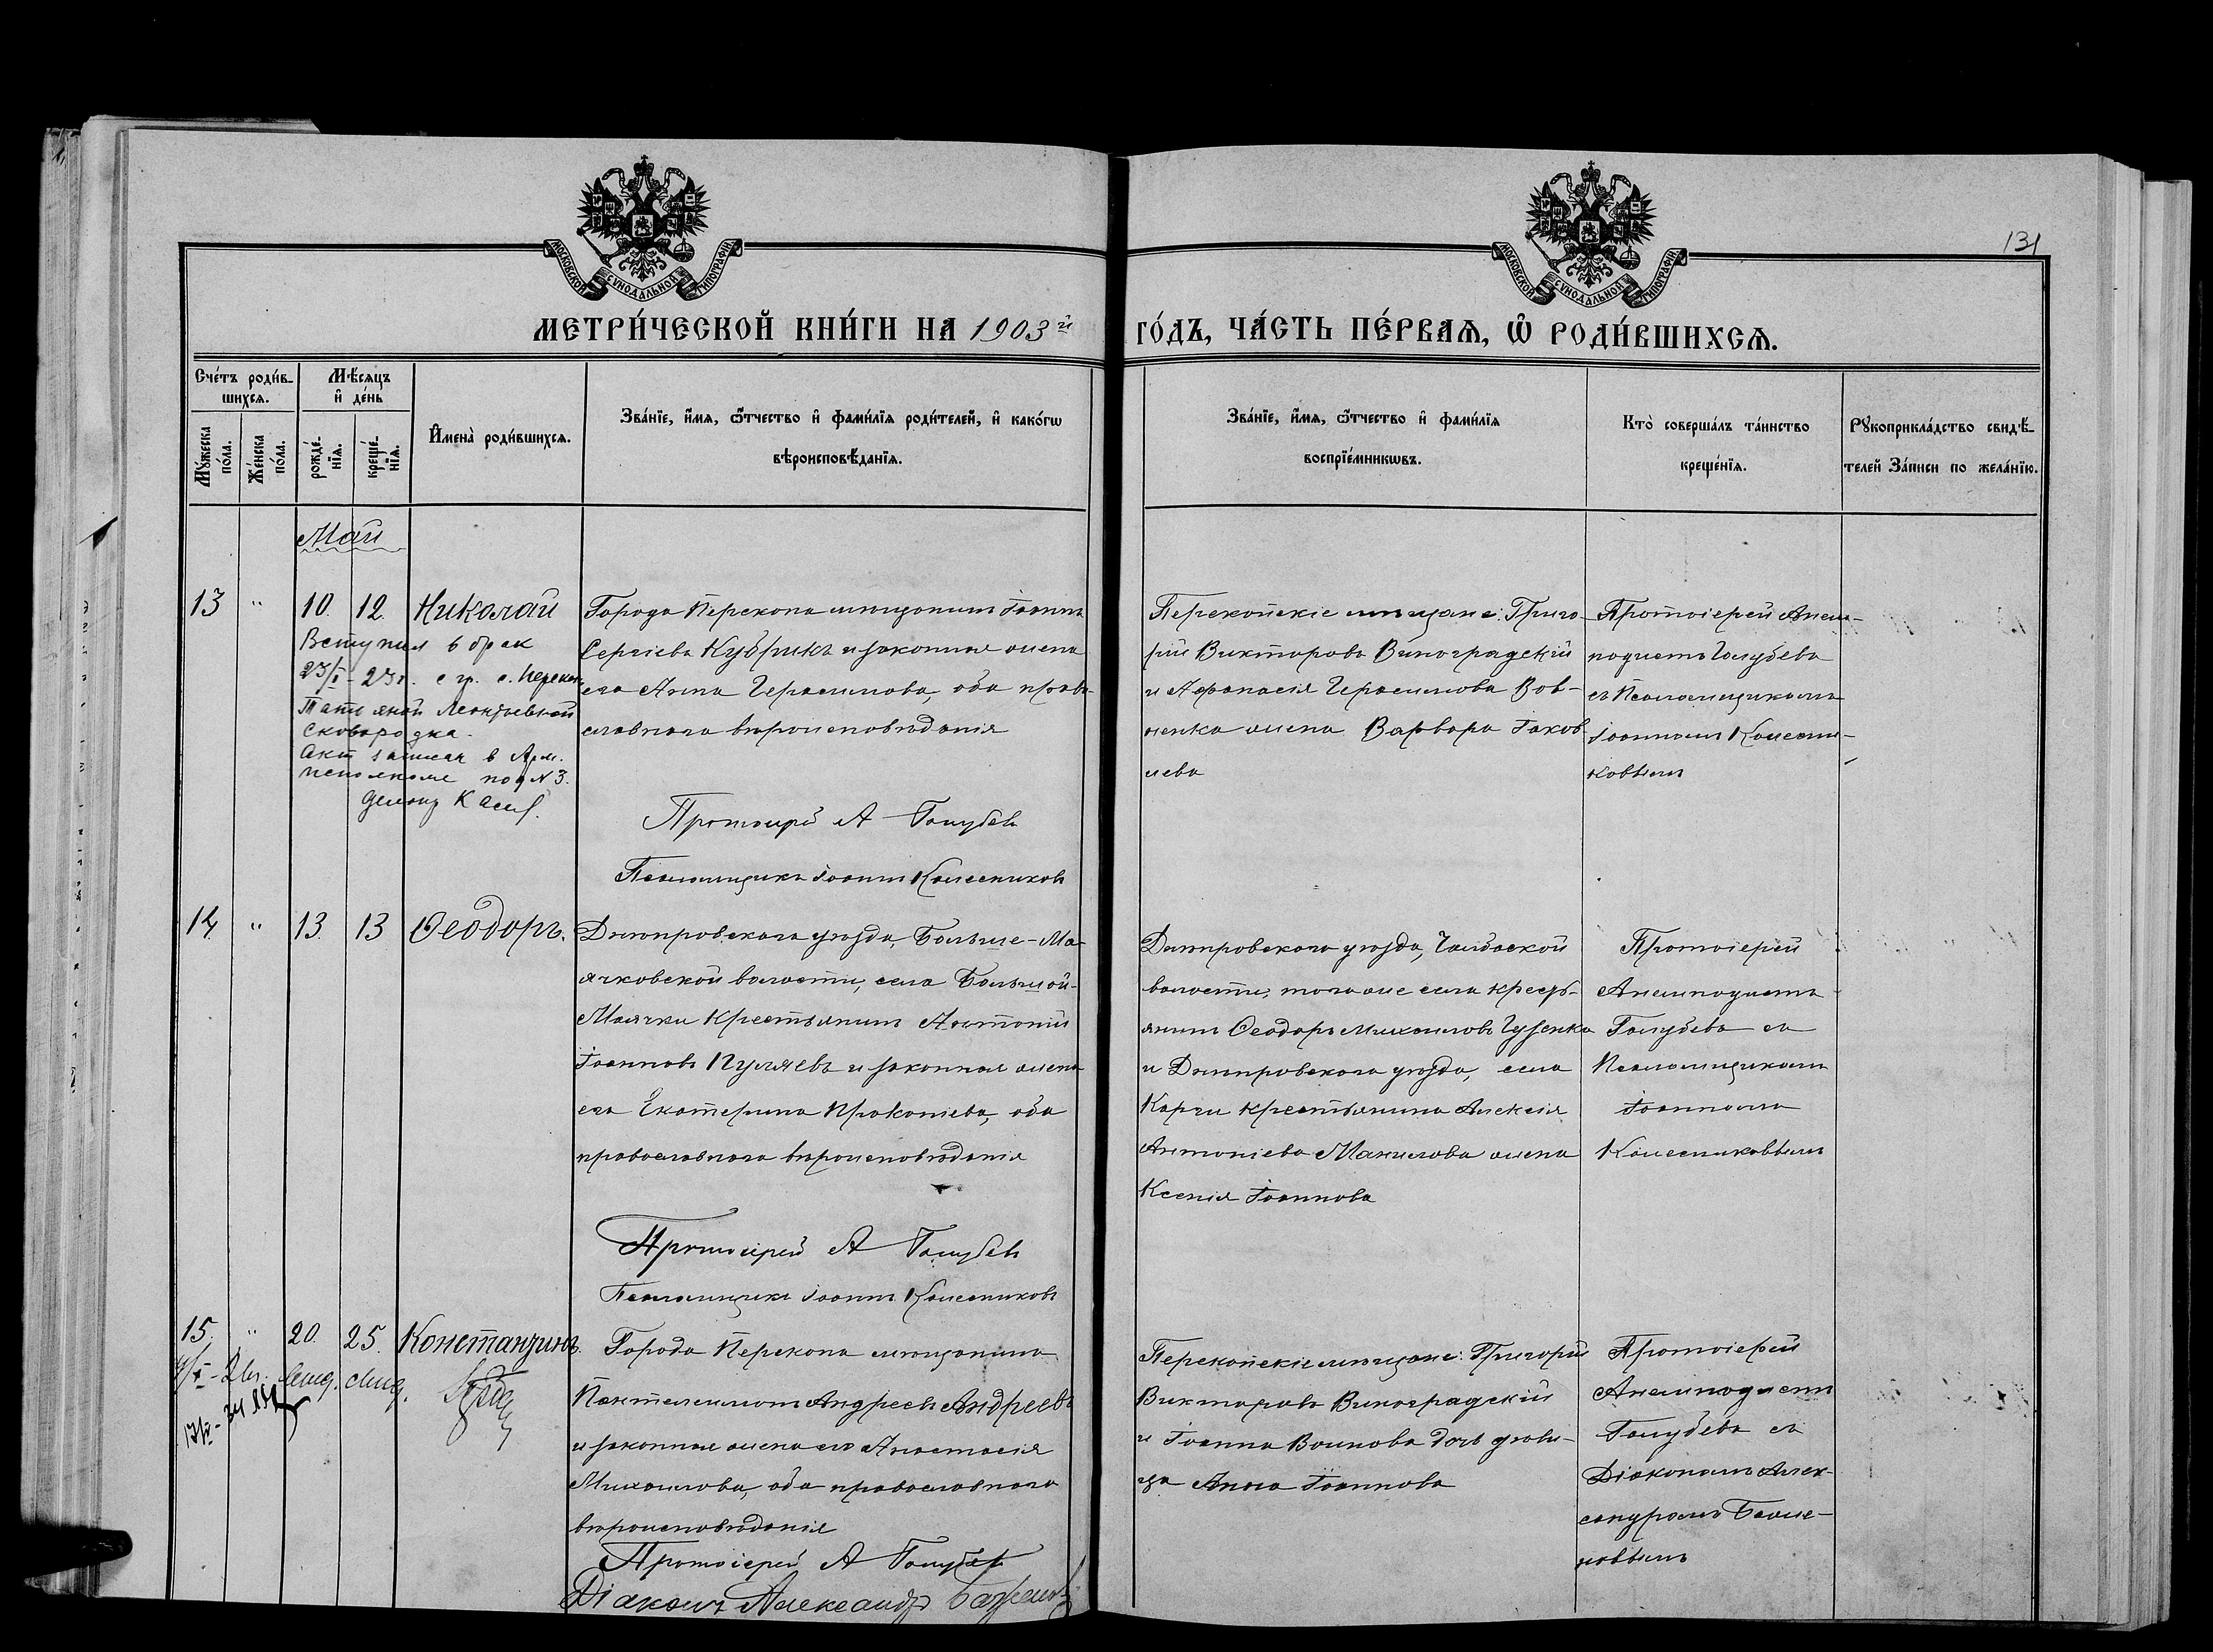 131
МОСКОВСКОЙ СѴНОДАЛЬНОЙ ТИПОГРАФІИ
МОСКОВСКОЙ СѴНОДАЛЬНОЙ ТИПОГРАФІИ
МЕТРИ́ЧЕСКОЙ КНИ́ГИ НА 1903й
ГО́ДЪ, ЧА́СТЬ ПЕ́РВАѦ, Ѿ РОДИ́ВШИХСѦ.
Сче́тъ роди́в-
шихсѧ.
Мꙋ́жеска
по́ла.
Же́нска
по́ла.
Мѣ́сѧцъ
и҆ де́нь
рожде́-
нїѧ.
креще́-
нїѧ.
И҆мена̀ роди́вшихсѧ.
Зва́нїе, и҆́мѧ, ѻ҆́тчество и҆ фами́лїѧ роди́телей, и҆ како́гѡ
вѣроисповѣ́данїѧ.
Зва́нїе, и҆́мѧ, ѻ҆́тчество и҆ фами́лїѧ
воспрїе́мникѡвъ.
Кто̀ соверша́лъ та́инство
креще́нїѧ.
Рꙋкоприкла́дство свидѣ́-
телей За́писи по жела́нїю.
Май
13 " 10. 12. Николай
Города Перекопа мѣщанинъ Іоаннъ
Сергіевъ Кубрикъ и законная жена
его Анна Герасимова, оба право-
славнаго вѣроисповѣданія
Вступил в брак
23/I - 23 г. с гр. с. Перекоп
Татьяной Леонтьевной
Сковородка.
Акт записан в Арм.
исполкоме под N 3.
Протоіерей А Голубевъ
Псаломщикъ Іоаннъ Колесниковъ
Перекопскіе мѣщане: Григо-
рій Викторовъ Виноградскій
и Афанасія Герасимова Вов-
ченка жена Варвара Іаков-
лева
Протоіерей Анем-
подистъ Голубевъ
съ Псаломщикомъ
Іоанномъ Колесни-
ковымъ
14 " 13. 13 Ѳеодоръ.
Днѣпровскаго уѣзда, Больше-Ма-
ячковской волости, села Большой-
Маячки крестьянинъ Антоній
Іоанновъ Пуляевъ и законная жена
его Екатерина Прокопіева, оба
православнаго вѣроисповѣданія
Протоіерей А Голубевъ
Псаломщикъ Іоаннъ Колесниковъ
Днѣпровскаго уѣзда, Чалбаской
волости, того же села кресть-
янинъ Ѳеодоръ Михаиловъ Гузенко
и Днѣпровскаго уѣзда, села
Карги крестьянина Алексія
Антоніева Манилова жена
Ксенія Іоаннова
Протоіерей
Анемподистъ
Голубевъ съ
Псаломщикомъ
Іоанномъ
Колесниковымъ
15. " 20. 25. Константинъ.
Города Перекопа мѣщанинъ
Пантелеимонъ Андреевъ Андреевъ
и законная жена его Анастасія
Михаилова, оба православнаго
вѣроисповѣданія
Протоіерей А Голубевъ
Діаконъ Александръ Баженовъ
Перекопскіе мѣщане: Григорій
Викторовъ Виноградскій
и Іоанна Воинова дочь дѣви-
ца Анна Іоаннова
Протоіерей
Анемподистъ
Голубевъ съ
Діакономъ Алек-
сандромъ Баже-
новымъ